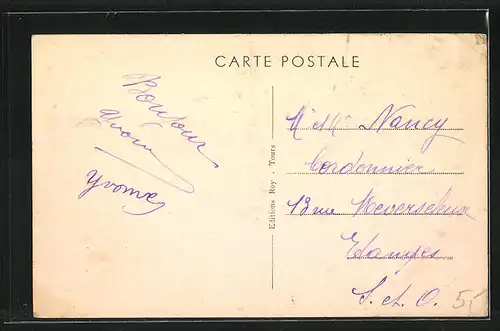 CARTE POSTALE
Bonjour
Yvonne
Yvonne
Editions Roy - Tours
Mr et Mme Nancy
Cordonnier
13 rue
Etampes
S. et O.
55